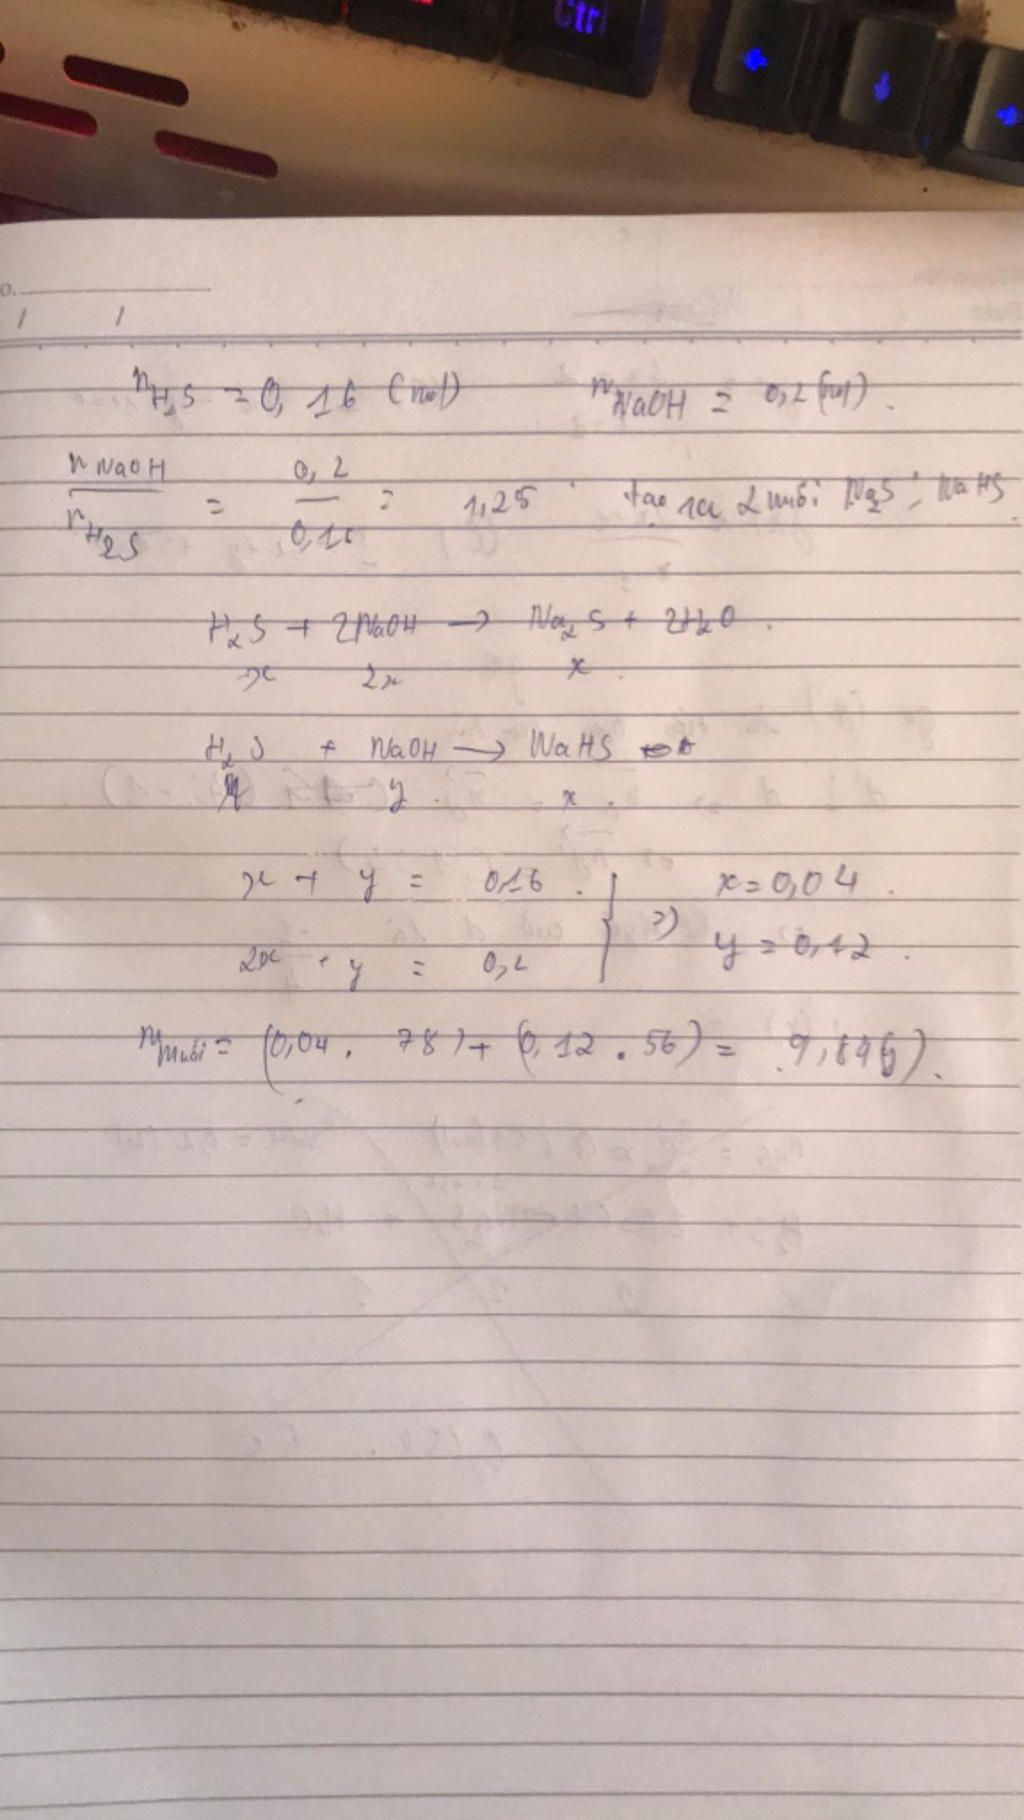 Ctrl
o.
/ /
nH2S = 0,16 (mol) nNaOH = 0,2 (mol).
nNaOH / nH2S = 0,2 / 0,16 = 1,25 tạo ra 2 muối Na2S, NaHS
H2S + 2NaOH → Na2S + 2H2O.
x 2x x.
H2S + NaOH → NaHS
y. x.
x + y = 0,16. } => x = 0,04.
2x + y = 0,2 y = 0,12.
mmuối = (0,04 . 78) + (0,12 . 56) =